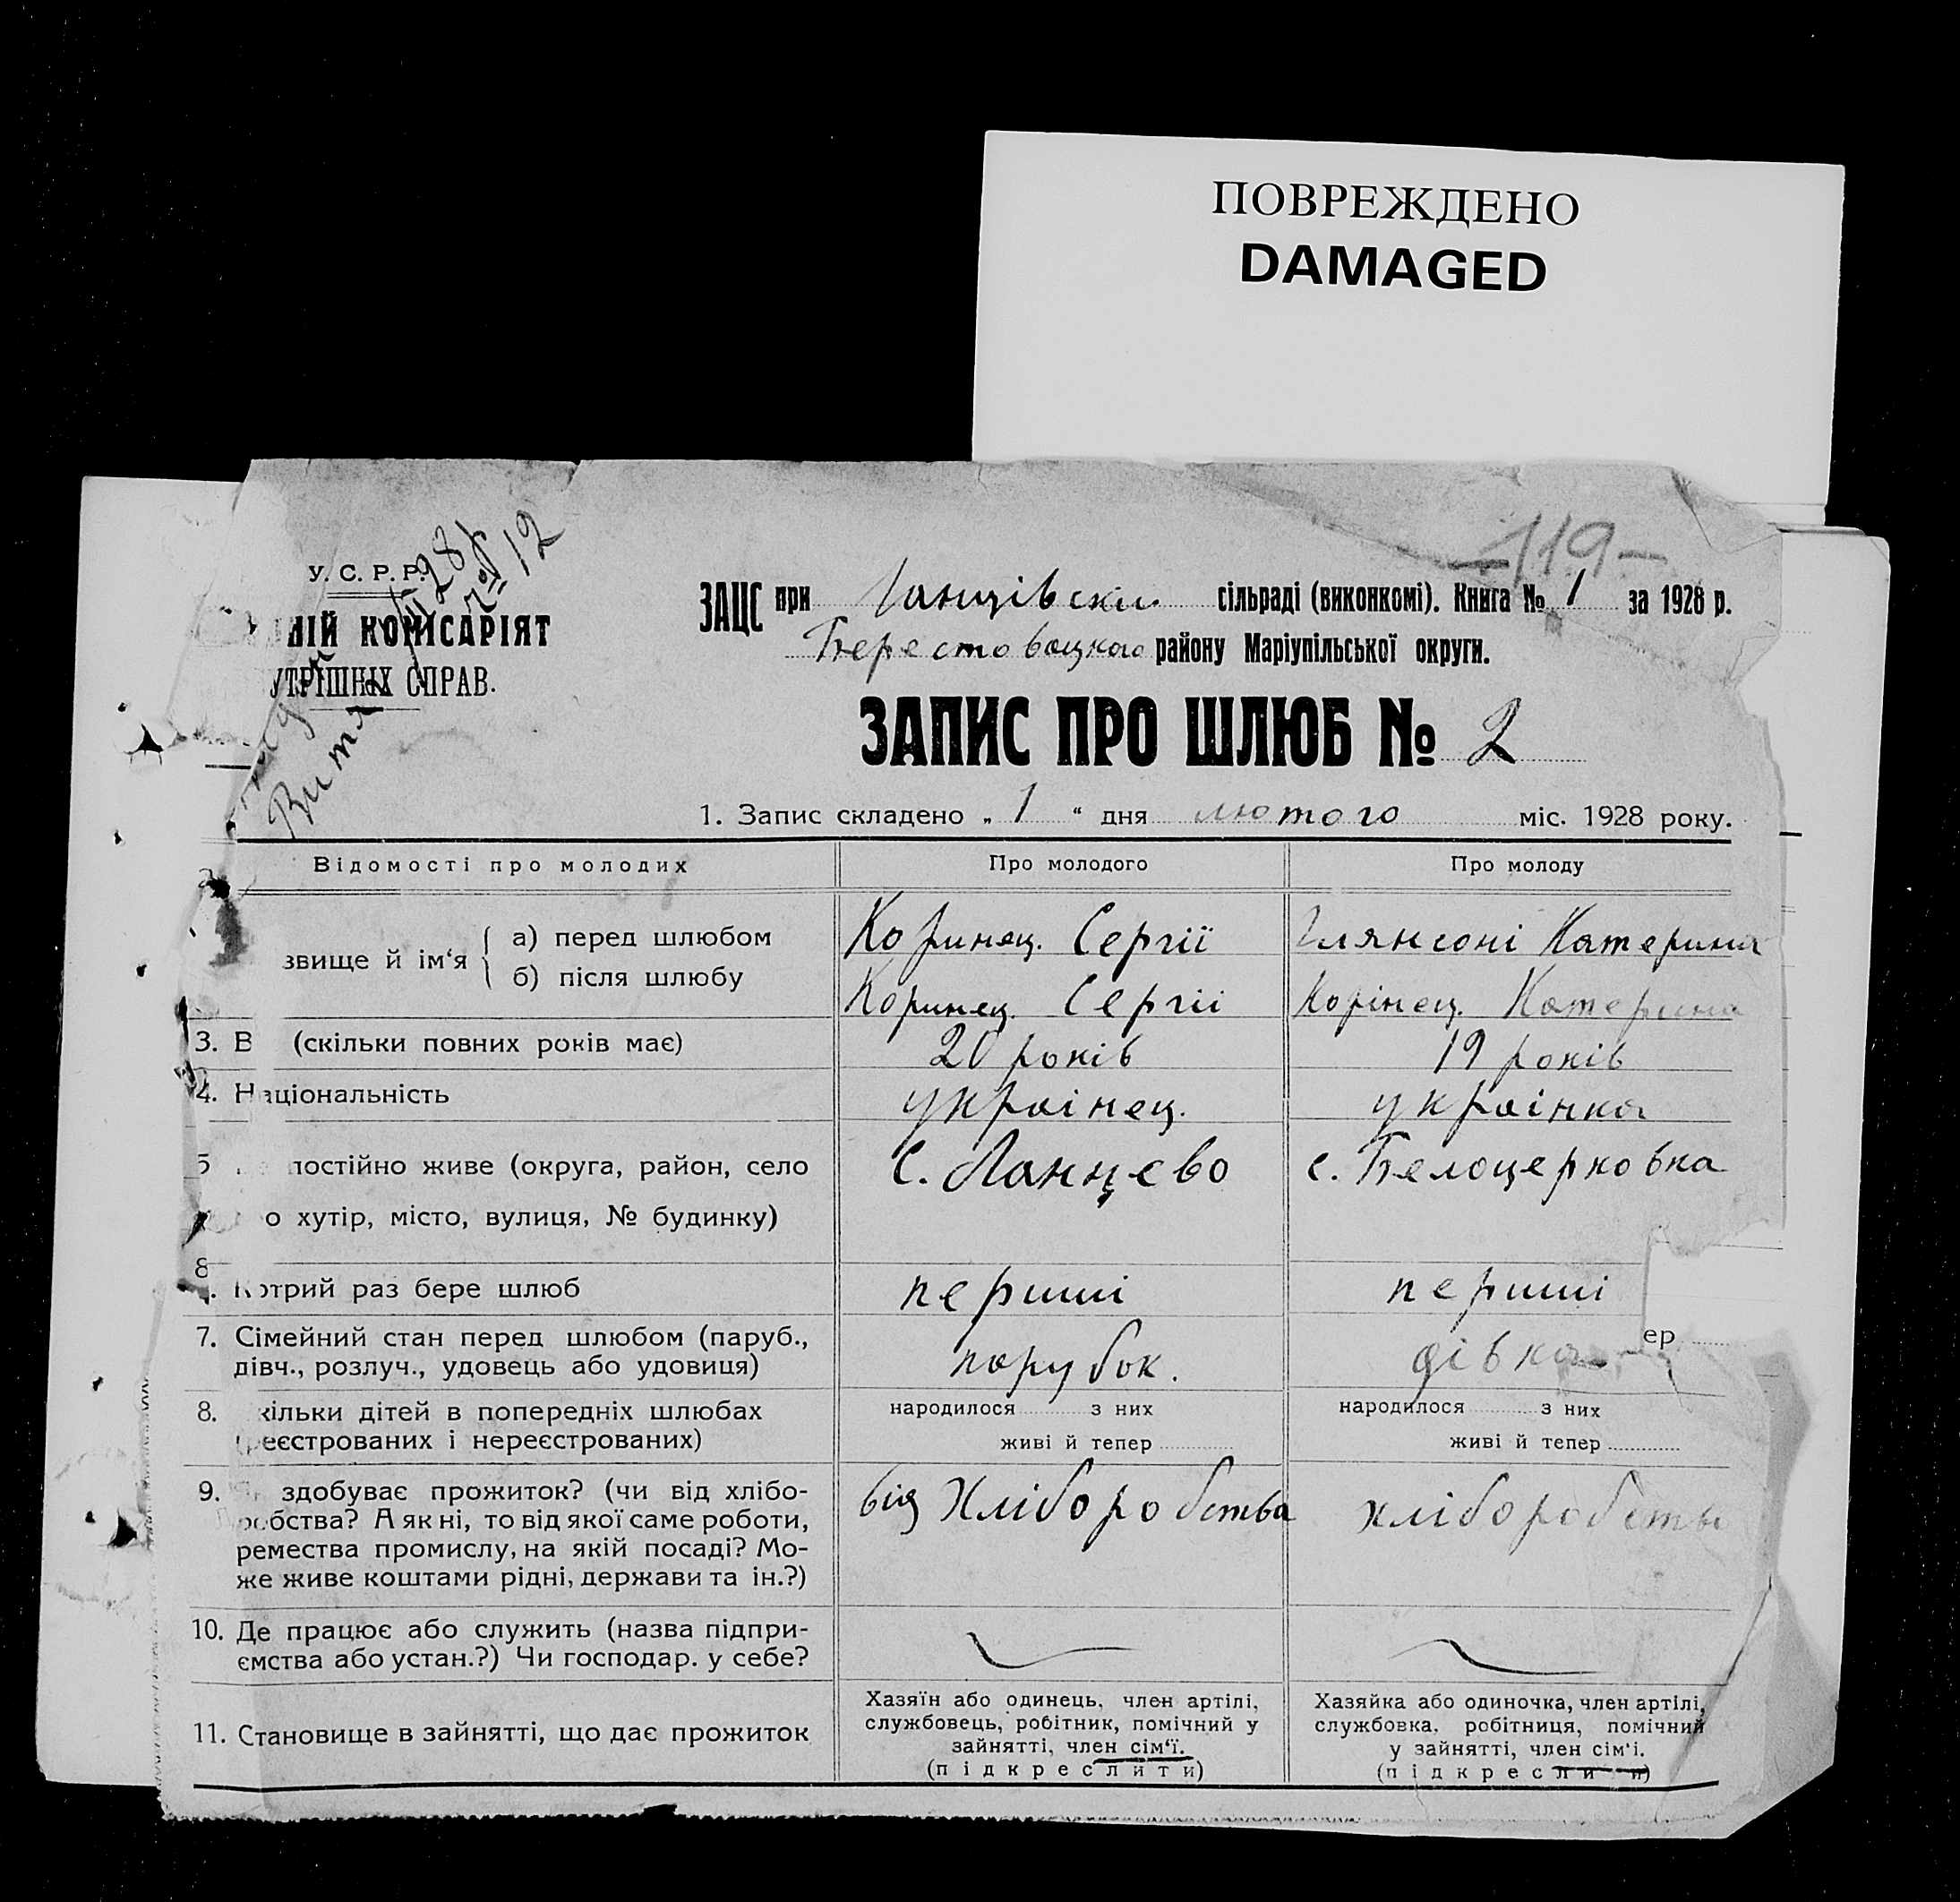 ПОВРЕЖДЕНО
DAMAGED
-119-
У. С. Р. Р.
НІЙ КОМІСАРІЯТ
УТРІШНІХ СПРАВ.
28 р.
12
Витяг
ЗАЦС при сільраді (виконкомі). Книга № 1 за 1928 р.
Берестовецкого району Маріупільської округи.
ЗАПИС ПРО ШЛЮБ № 2
1. Запис складено „ 1 “ дня лютого міс. 1928 року.
Відомості про молодих Про молодого Про молоду
звище й ім‘я а) перед шлюбом Коринец. Сергії Катерина
б) після шлюбу Коринец. Сергіі Корінец. Катерина
3. В (скільки повних років має) 20 років 19 років
4. Національність україінец. україінка
5 постійно живе (округа, район, село с. Ланцево с. Белоцерковка
о хутір, місто, вулиця, № будинку)
8
Котрий раз бере шлюб перший перший
7. Сімейний стан перед шлюбом (паруб., ер
дівч., розлуч., удовець або удовиця) парубок. дівка
8. кільки дітей в попередніх шлюбах народилося з них народилося з них
реєстрованих і нереєстрованих) живі й тепер живі й тепер
9. здобуває прожиток? (чи від хлібо- від Хліборобства хліборобства
робства? А як ні, то від якої саме роботи,
ремества промислу, на якій посаді? Мо-
же живе коштами рідні, держави та ін.?)
10. Де працює або служить (назва підпри-
ємства або устан.?) Чи господар. у себе?
11. Становище в зайнятті, що дає прожиток
Хазяїн або одинець, член артілі,
службовець, робітник, помічний у
зайнятті, член сім‘ї.
(підкреслити)
Хазяйка або одиночка, член артілі,
службовка, робітниця, помічний
у зайнятті, член сім‘і.
(підкреслити)